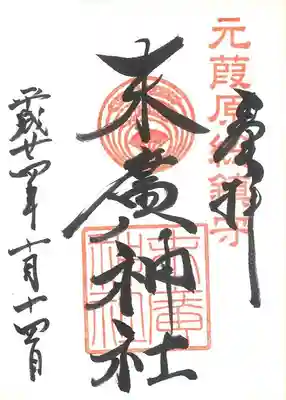 元葭原総鎮守
奉拝
末廣神社
平成廿四年十一月十四日